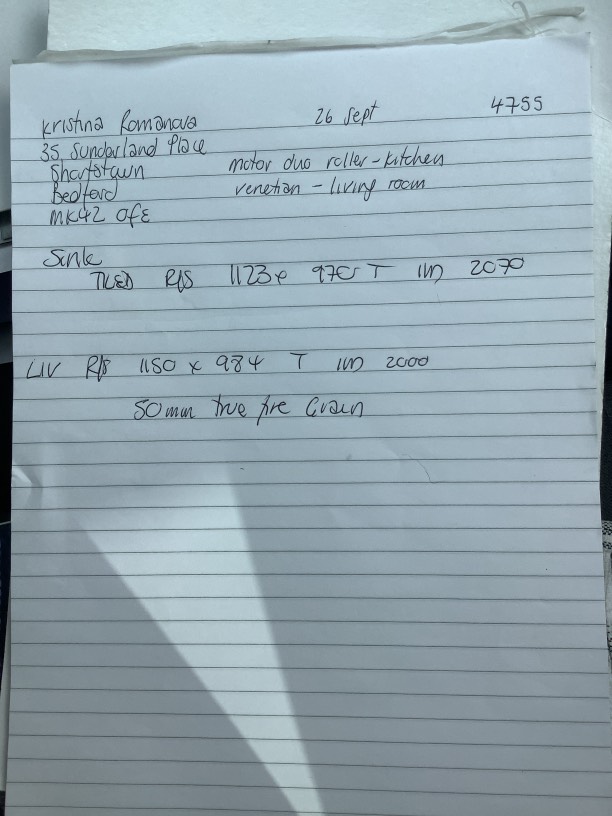 Kristina Romanova 26 Sept 4755
35 Sunderland Place
Shortstown motor duo roller - kitchen
Bedford venetian - living room
MK42 0FE
Sink
TILED R/S 1123 x 970 T 1M 2070
LIV R/S 1150 x 984 T 1M 2000
50mm true fre Grain